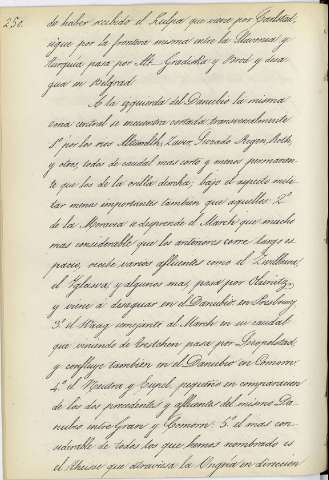 250.
de haber recibido el Kulpa que viene por Carlstad,
sigue por la frontera misma entre la Slavonia y
Turquia pasa por Alt. Gradiska y Brod y desa
gua en Belgrad.
A la izquierda del Danubio la misma
zona central se encuentra cortada transversalmente
1º por los rios Altmühl, Laver, Schwarz Regen, Roth,
y otros, todos de caudal mas corto y menos permanen
te que los de la orilla derecha; bajo el aspecto mili
tar menos importantes tambien que aquellos. 2º
de la Moravia se desprende el March que mucho
mas considerable que los anteriores corre largo es
pacio, recibe varios afluentes como el Zwittawa,
el Yglawa, y algunos mas, pasa por Olmütz,
y viene a desaguar en el Danubio en Presburg.
3º el Waag semejante al March en su caudal
que viniendo de Trestchen pasa por Leopolstad,
y confluye tambien en el Danubio en Comorn.
4º el Neutra y Eypel, pequeños en comparacion
de los dos precedentes y afluentes del mismo Da
nubio entre Gran y Comorn. 5º el mas con
siderable de todos los que hemos nombrado es
el Theiss que atraviesa la Ungria en direccion